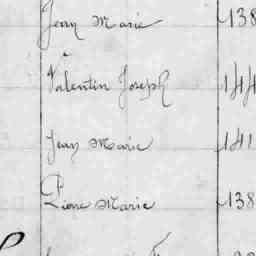 Jean Marie 138
Valentin Joseph 144
Jean Marie 141
Pierre Marie 138